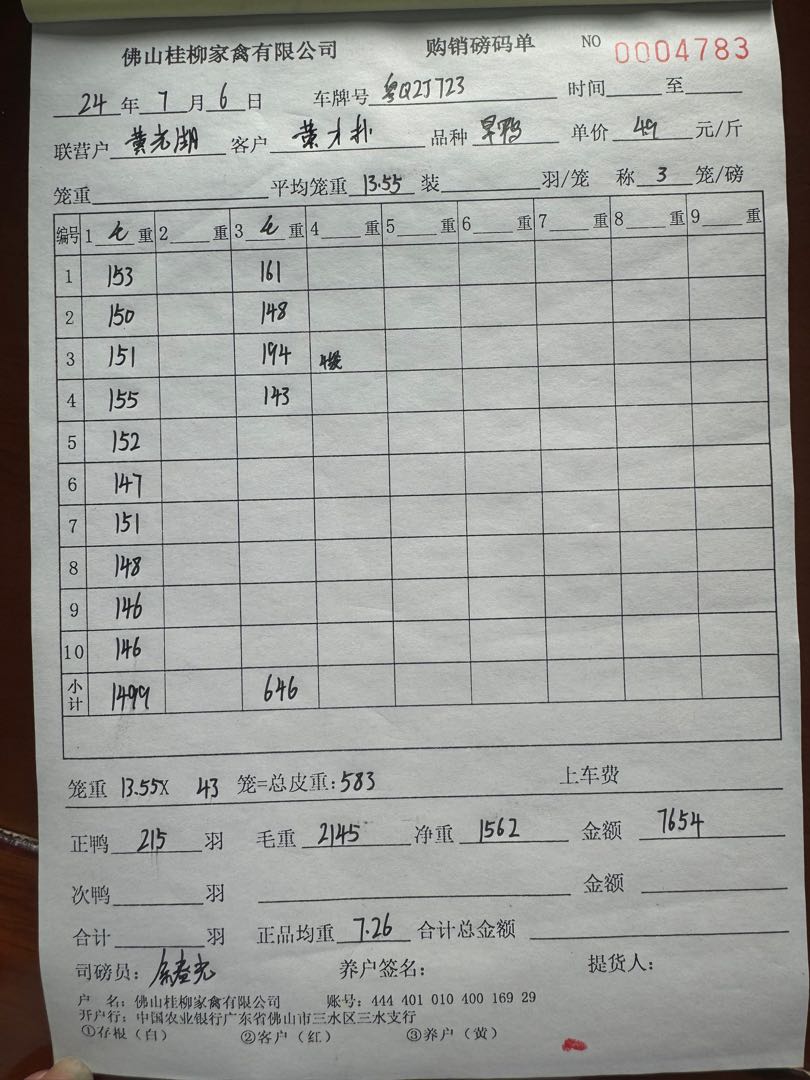 佛山桂柳家禽有限公司 购销磅码单 NO 0004783
24 年 7 月 6 日 车牌号 粤Q2J723 时间 至
联营户 黄光湖 客户 黄才朴 品种 旱鸭 单价 4.9 元/斤
笼重 平均笼重 13.55 装 羽/笼 称 3 笼/磅
编号 1 毛 重 2 重 3 毛 重 4 重 5 重 6 重 7 重 8 重 9 重
1 153 161
2 150 148
3 151 194 4笼
4 155 143
5 152
6 147
7 151
8 148
9 146
10 146
小计 1499 646
笼重 13.55X 43 笼=总皮重:583 上车费
正鸭 215 羽 毛重 2145 净重 1562 金额 7654
次鸭 羽 金额
合计 羽 正品均重 7.26 合计总金额
司磅员: 养户签名: 提货人:
户 名: 佛山桂柳家禽有限公司 账号: 444 401 010 400 169 29
开户行: 中国农业银行广东省佛山市三水区三水支行
①存根（白） ②客户（红） ③养户（黄）